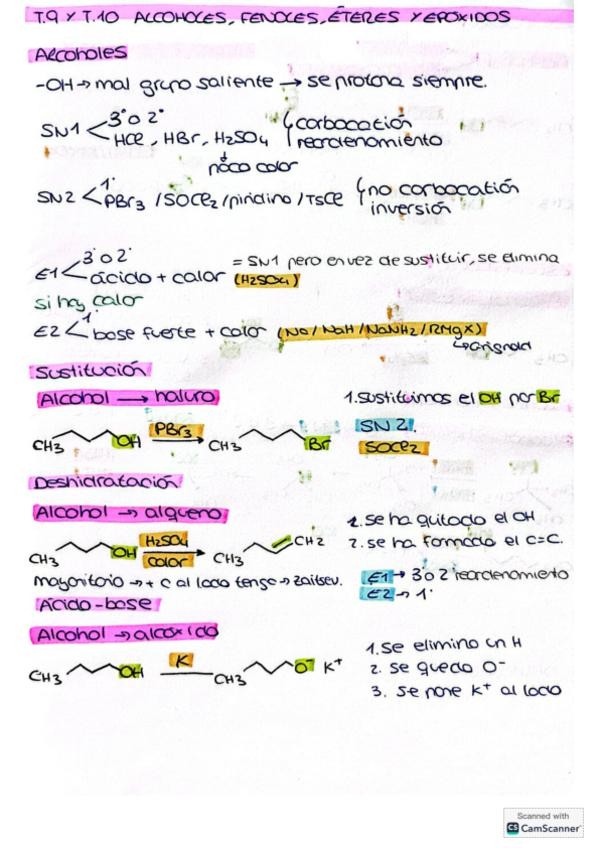 T.9 Y T.10 ALCOHOLES, FENOLES, ÉTERES Y EPÓXIDOS
Alcoholes
-OH → mal grupo saliente → se protona siempre.
SN1 < 3° o 2° { carbocatión
HCl, HBr, H2SO4 reordenamiento
↓
poco calor
SN2 < 1° { no carbocatión
PBr3 / SOCl2 / piridina / TsCl inversión
E1 < 3° o 2° = SN1 pero en vez de sustituir, se elimina
ácido + calor (H2SO4)
si hay calor
E2 < 1°
base fuerte + calor (Na / NaH / NaNH2 / RMgX)
↳ Grignard
Sustitución
Alcohol → haluro 1. Sustituimos el OH por Br
CH3 OH PBr3 → CH3 Br SN2.
SOCl2
Deshidratación
Alcohol → alqueno 1. Se ha quitado el OH
CH3 OH H2SO4 → calor CH3 CH2 2. Se ha formado el C=C.
mayoritario → + C al lado tenga → zaitsev. E1 → 3° o 2° reordenamiento
E2 → 1°
Ácido-base
Alcohol → alcóxido 1. Se elimina un H
CH3 OH K CH3 O⁻ K⁺ 2. Se queda O⁻
3. Se pone K⁺ al lado
Scanned with
CS CamScanner